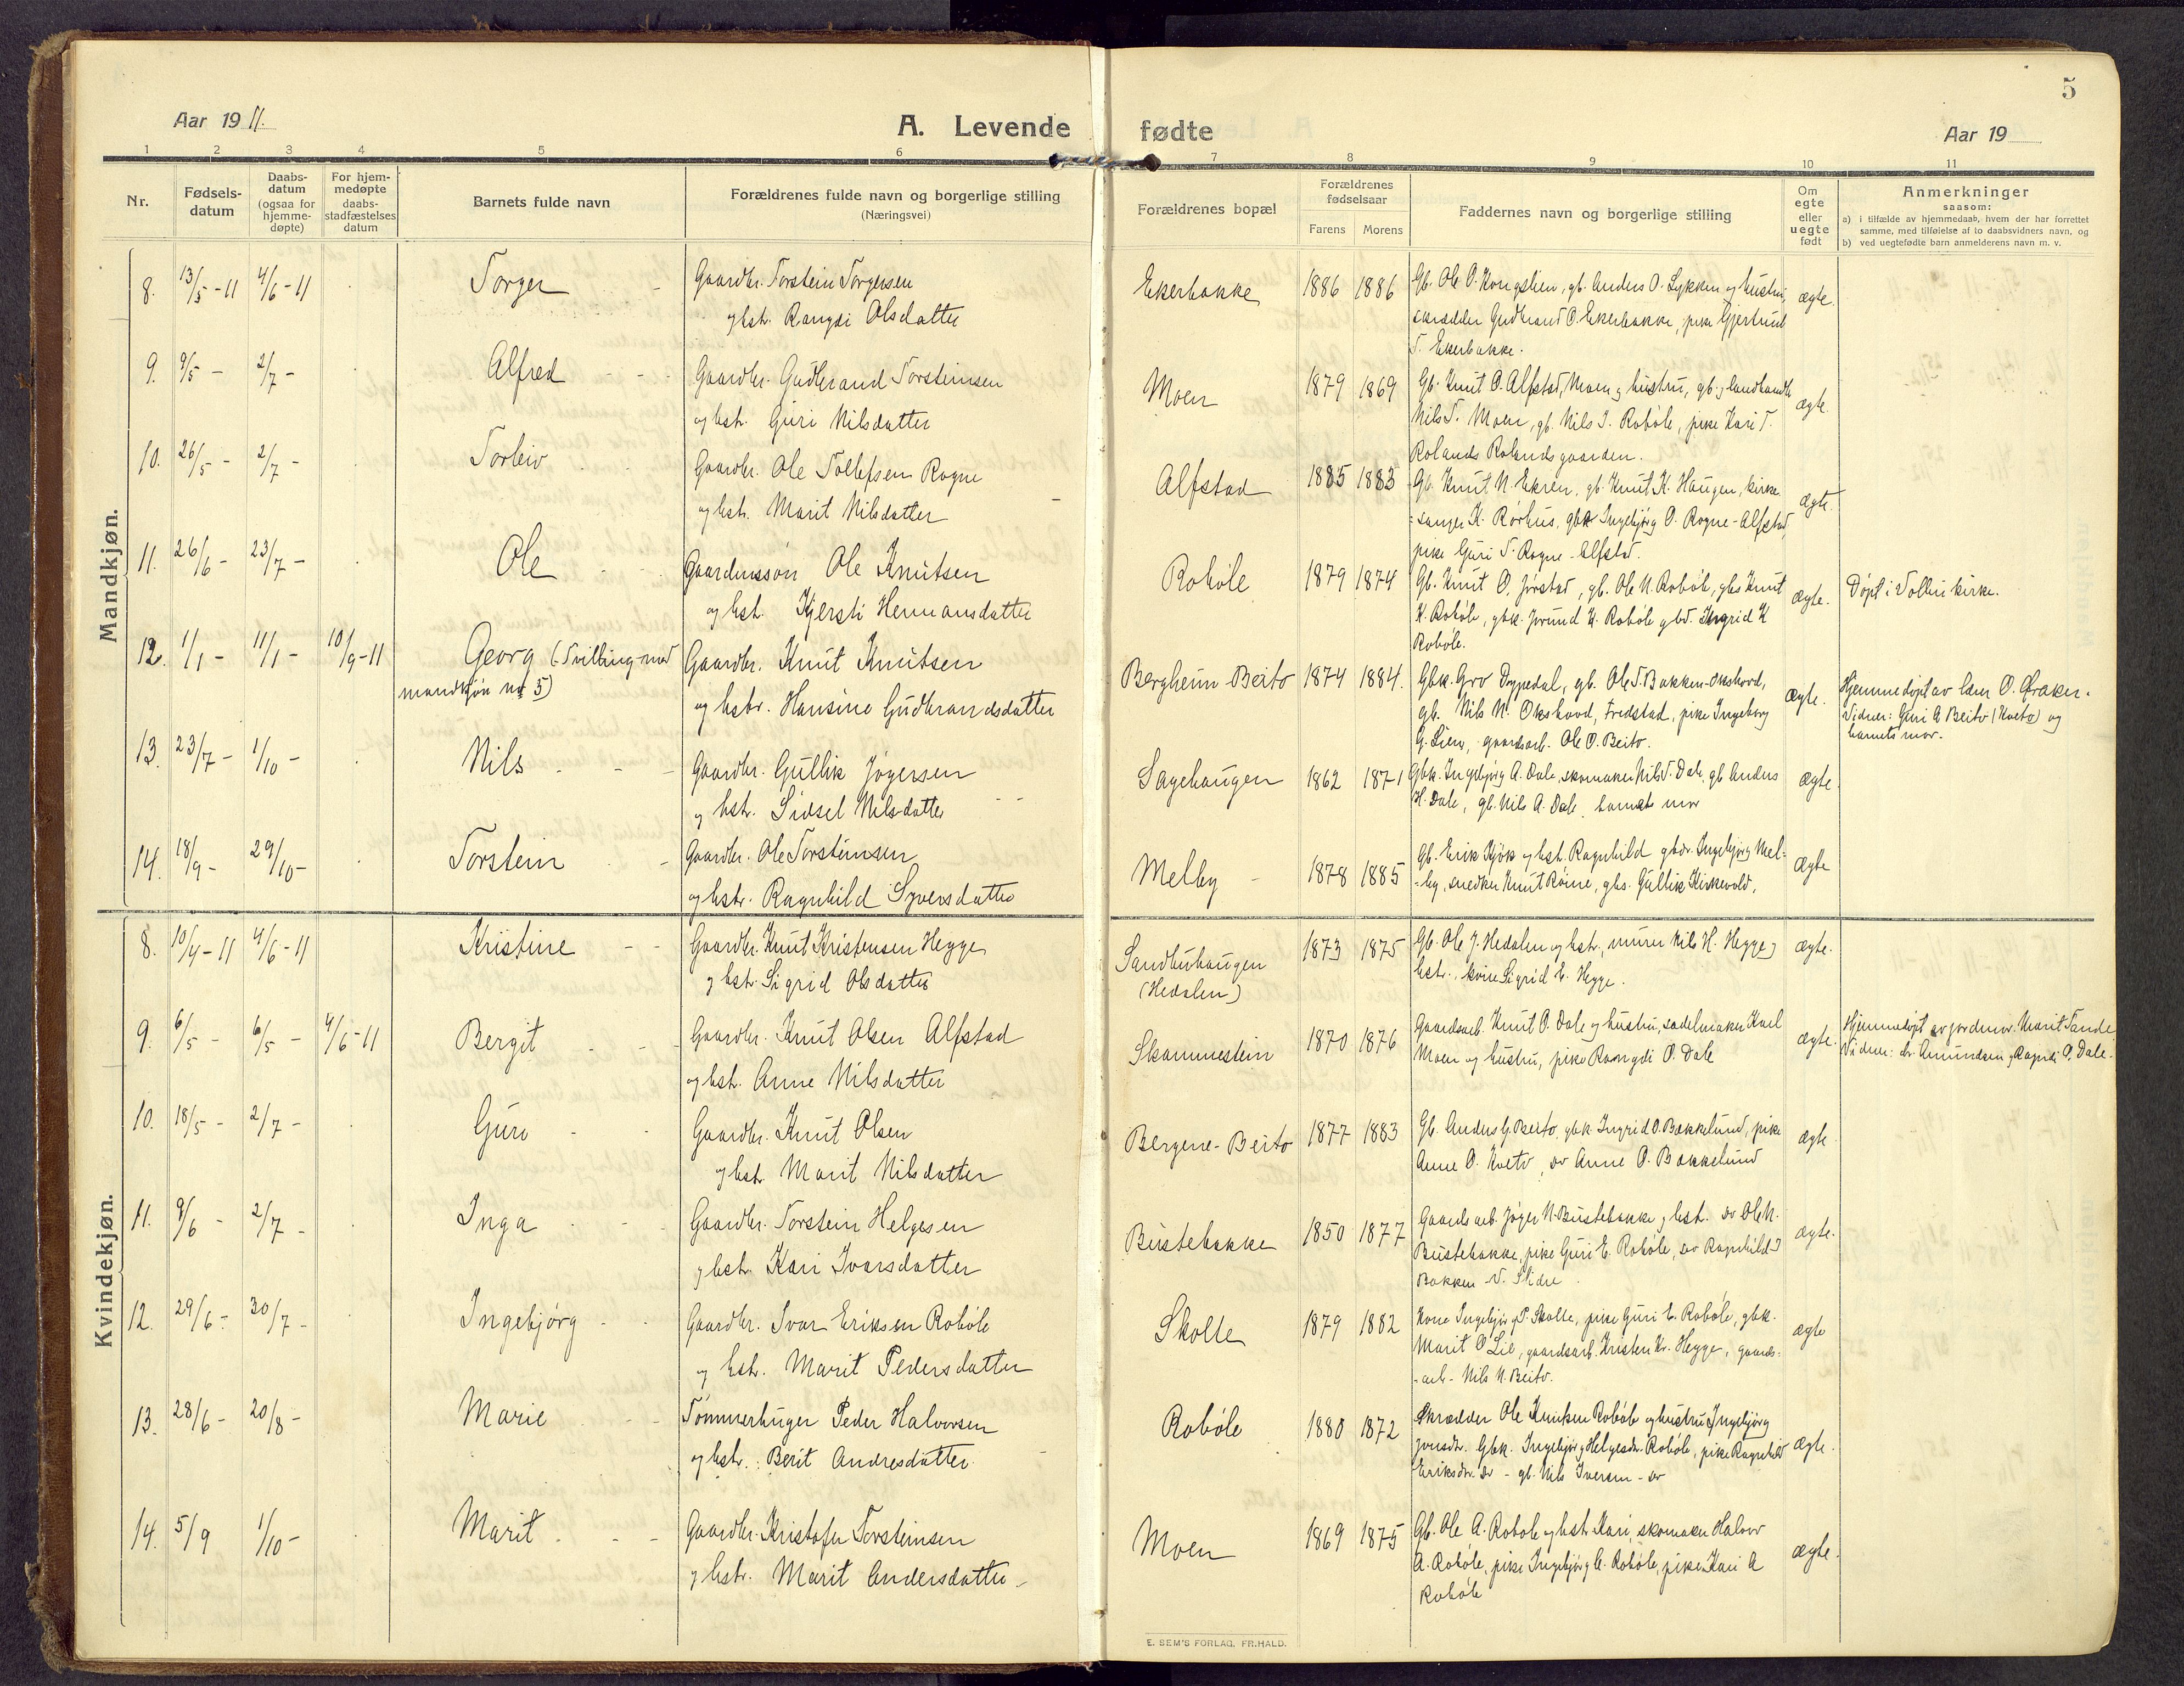 5
Aar 19 11.
A. Levende fødte
Aar 19
1 2 3 4 5 6 7 8 9 10 11
Nr.
Fødsels-
datum
Daabs-
datum
(ogsaa for
hjemme-
døpte)
For hjem-
medøpte
daabs-
stadfæstelses
datum
Barnets fulde navn
Forældrenes fulde navn og borgerlige stilling
(Næringsvei)
Forældrenes bopæl
Forældrenes
fødselsaar
Farens Morens
Faddernes navn og borgerlige stilling
Om
egte
eller
uegte
født
Anmerkninger
saasom:
a) i tilfælde av hjemmedaab, hvem der har forrettet
samme, med tilføielse af to daabsvidners navn, og
b) ved uegtefødte barn anmelderens navn m. v.
Mandkjøn.
8. 13/5-11 4/6-11 Torger
Gaardbr. Torstein Torgersen
og hst. Rangdi Olsdatter
Ekerbakke 1886 1886
Gb. Ole O. Kongslien, gb. Anders O. Lykken og hustru,
skrædder Gudbrand O. Ekerbakke, pike Gjertrud
T. Ekerbakke.
ægte.
9. 9/5 - 2/7 - Alfred
Gaardbr. Gudbrand Torsteinsen
og hst. Guri Nilsdatter
Moen 1879 1869
Gb. Knut O. Alfstad, Moen og hustru, gb. og landhandl.
Nils T. Moen, gb. Nils I. Robøle, pike Kari T.
Rolands Rolandsgaarden.
ægte.
10. 26/5 - 2/7 - Torleiv
Gaardbr. Ole Tollefsen Rogne
og hst. Marit Nilsdatter
Alfstad 1885 1883
Gb. Knut N. Ekren, gb. Knut K. Haugen, kirke
=sanger K. Rørhus, gbk. Ingebjørg O. Rogne-Alfstad,
pike Guri T. Rogne-Alfstad.
ægte.
11. 26/6 - 23/7 - Ole
Gaardmssøn Ole Knutsen
og hst. Kjersti Hermansdatter
Robøle 1879 1874
Gb. Knut O. Jørstad, gb. Ole N. Robøle, gbs Knut
K. Robøle, gbk. Jørund K. Robøle gbd. Ingrid K
Robøle.
ægte. Døpt i Volbu kirke.
12. 1/1 - 11/1 - 10/9-11 Georg (Tvilling med
mandkjøn nr 5)
Gaardbr. Knut Knutsen
og hstr. Hansine Gudbrandsdatter
Bergheim-Beito 1874 1884.
Gbk. Gro Dypedal, gb. Ole T. Bakken-Okshovd,
gb. Nils N. Okshovd, Fredstad, pike Ingeborg
G. Lien, gaardsarb. Ole O. Beito.
ægte.
Hjemmedøpt av lærer O. Fraker.
Vidner: Guri A Beito (Kveto) og
barnets mor.
13. 23/7 - 1/10 - Nils
Gaardbr. Gullik Jøgersen
og hst. Sidsel Nilsdatter
Sagehaugen 1862 1871
Gbk. Ingebjørg A. Dale, skomaker Nils T. Dale, gb Anders
H. Dale, gb. Nils A. Dale, barnets mor
ægte.
14. 18/9 - 29/10 - Torstein
Gaardbr. Ole Torsteinsen
og hstr. Ragnhild Syversdatter
Melby 1878 1885
Gb. Erik Kjøk og hst. Ragnhild gbdr. Ingebjørg Mel-
=by, snedker Knut Rönne, gbs. Gullik Kirkevold.
ægte
Kvindekjøn.
8. 10/4-11 4/6-11 Kristine
Gaardbr. Knut Kristensen Hegge
og hst. Sigrid Olsdatter
Sandbuhaugen
(Hedalen)
1873 1875
Gb. Ole J. Hedalen og hstr., murer Nils H. Hegge og
hstr., kone Sigrid E. Hegge.
ægte.
9. 6/5 - 6/5 - 4/6-11 Bergit
Gaardbr. Knut Olsen Alfstad
og hst. Anne Nilsdatter
Skammestein 1870 1876
Gaardsarb. Knut O. Dale og hustru, sadelmaker Karl
Moen og hustru, pike Rangdi O. Dale
ægte.
Hjemmedøpt av jordmor Marit Sande
Vidner: dr. Amundsen og Ragndi O. Dale.
10. 18/5 - 2/7 - Guro
Gaardbr. Knut Olsen
og hst. Marit Nilsdatter
Bergene-Beito 1877 1883
Gb. Anders G. Beito, gbk Ingrid O. Bakkelund, pike
Anne O. Kveto, do Anne O. Bakkelund
ægte.
11. 9/6 - 2/7 - Inga
Gaardbr. Torstein Helgesen
og hst. Kari Ivarsdatter
Bustebakke 1850 1877
Gaardsarb. Jøger N. Bustebakke og hst. do Ole N.
Bustebakke, pike Guri E. Robøle, do Ragnhild T
Bakken V. Slidre.
ægte.
12. 29/6 - 30/7 - Ingebjørg
Gaardbr. Ivar Eriksen Robøle
og hst. Marit Pedersdatter
Skolte 1879 1882
Kone Ingebjørg P. Skolte, pike Guri E. Robøle, gbk.
Marit O Lie, gaardsarb. Kristen Kr. Hegge, gaards-
-arb. Nils N. Beito.
ægte
13. 28/6 - 20/8 - Marie
Tømmerhuger Peder Halvorsen
og hstr. Berit Andresdatter
Robøle 1880 1872
Skrædder Ole Knutsen Robøle og hustru Ingebjørg
Jonsdr. Gbk. Ingebjørg Helgesdr. Robøle, pike Ragnhild
Eriksdr. do - gb. Nils Iversen - do
ægte.
14. 5/9 1/10 - Marit
Gaardbr. Kristofer Torsteinsen
og hstr. Marit Andersdatter
Moen 1869 1875
Gb. Ole A. Robole og hst. Kari, skomaker Halvor
A. Robøle, pike Ingebjørg A. Robøle, pike Kari A
Robøle
ægte.
E. SEM'S FORLAG. FR.HALD.